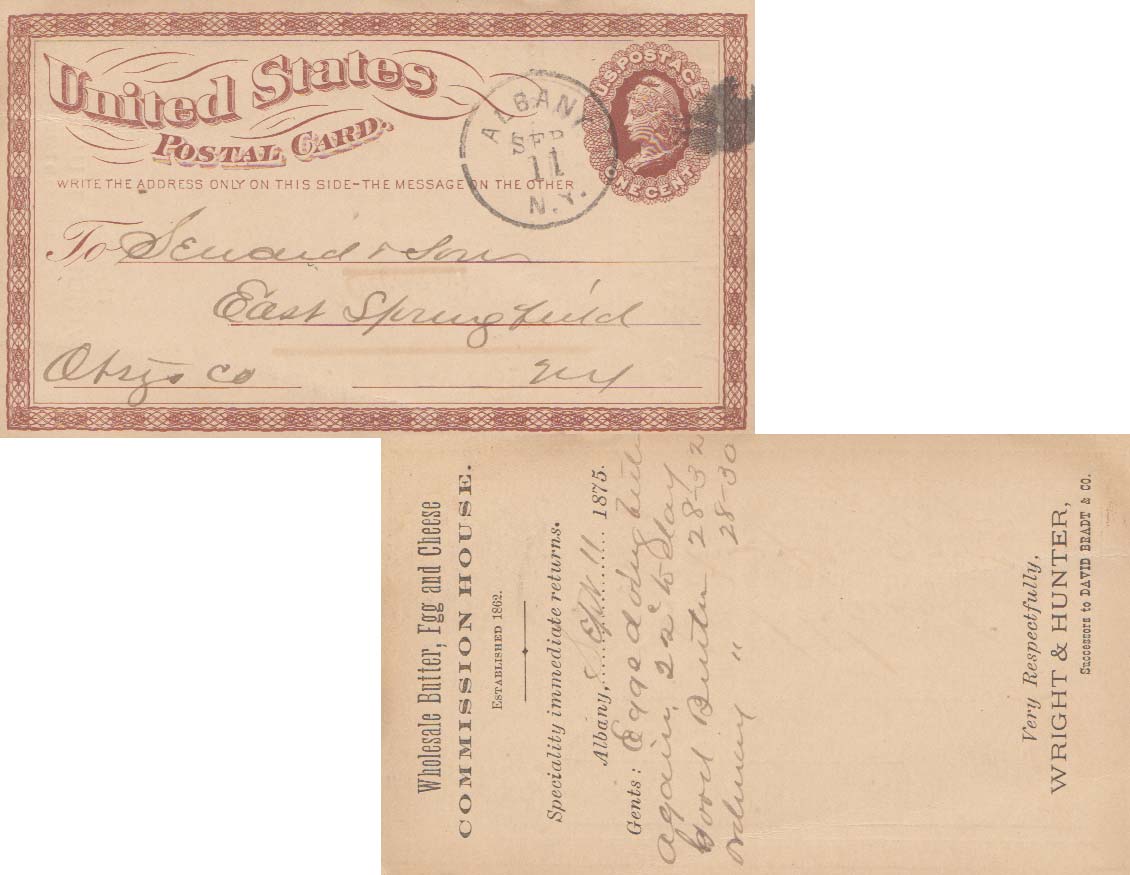 United States
POSTAL CARD.
WRITE THE ADDRESS ONLY ON THIS SIDE–THE MESSAGE ON THE OTHER
U.S. POSTAGE
ONE CENT
ALBANY
SEP
11
N.Y.
To Seward & Son
East Springfield
Otsego Co
NY
Wholesale Butter, Egg and Cheese
COMMISSION HOUSE.
ESTABLISHED 1862.
Speciality immediate returns.
Albany, Sept 11 1875.
Gents: Eggs doing better
again, 22c to day
Good Butter 28-32
Ordinary " 28-30
Very Respectfully,
WRIGHT & HUNTER,
Successors to DAVID BRADT & CO.